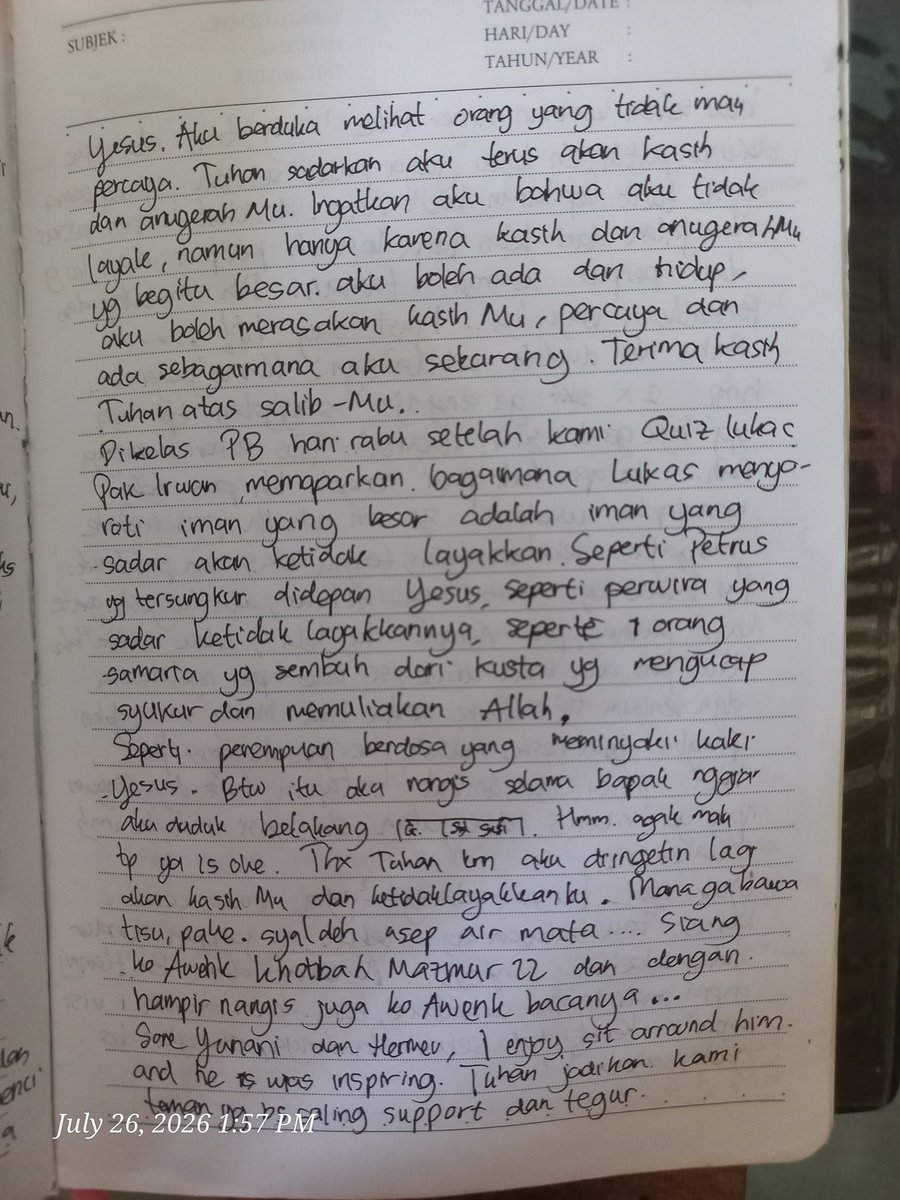 SUBJEK :
TANGGAL/DATE :
HARI/DAY :
TAHUN/YEAR :
Yesus. Aku berduka melihat orang yang tidak mau
percaya. Tuhan sadarkan aku terus akan kasih
dan anugerah Mu. Ingatkan aku bahwa aku tidak
layak, namun hanya karena kasih dan anugerahMu
yg begitu besar. aku boleh ada dan hidup,
aku boleh merasakan kasih Mu, percaya dan
ada sebagaimana aku sekarang. Terima kasih
Tuhan atas salib-Mu..
Dikelas PB hari rabu setelah kami Quiz lukas
Pak Irwan memaparkan bagaimana Lukas menyo-
roti iman yang besar adalah iman yang
sadar akan ketidak layakkan. Seperti Petrus
yg tersungkur didepan Yesus, seperti perwira yang
sadar ketidak layakkannya, seperti 1 orang
samaria yg sembuh dari kusta yg mengucap
syukur dan memuliakan Allah.
Seperti perempuan berdosa yang meminyaki kaki
Yesus. Btw itu aku nangis selama bapak ngajar
aku duduk belakang. Hmm. agak malu
tp ga is oke. Thx Tuhan krn aku diingetin lagi
akan kasih Mu dan ketidaklayakkanku. Mana ga bawa
tisu, pake syal deh usap air mata.... Siang
ko Awenk khotbah Mazmur 22 dan dengan
hampir nangis juga ko Awenk bacanya...
Sore Yunani dan Hermeu, I enjoy sit arround him
and he was inspiring. Tuhan jadikan kami
teman yg bs saling support dan tegur.
July 26, 2026 1:57 PM